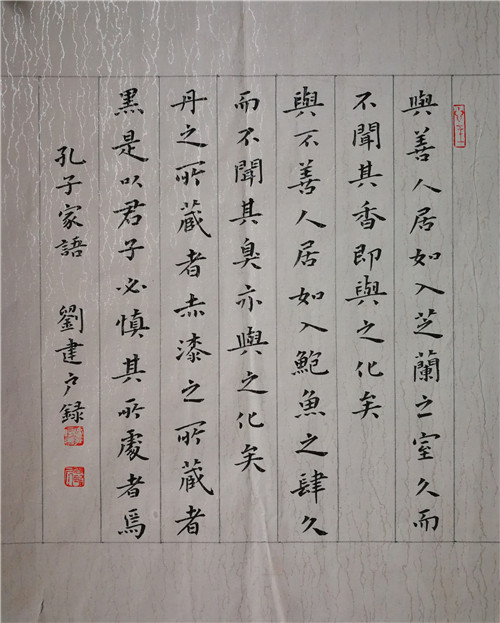 與善人居如入芝蘭之室久而
不聞其香即與之化矣
與不善人居如入鮑魚之肆久
而不聞其臭亦與之化矣
丹之所藏者赤漆之所藏者
黑是以君子必慎其所處者焉
孔子家語 劉建户錄